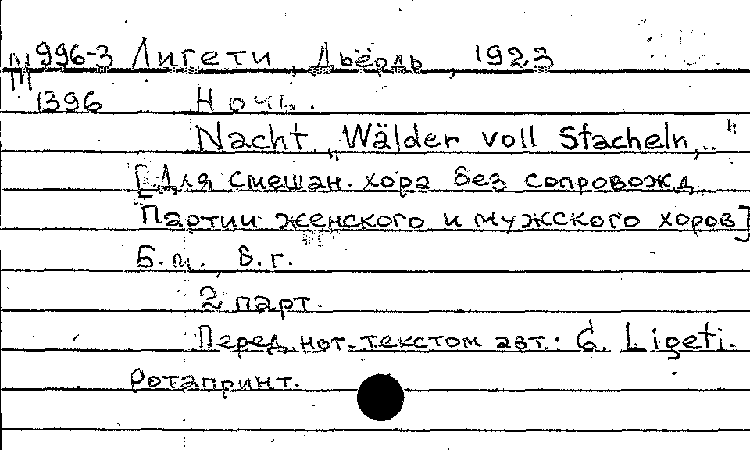 М 996-3 Лигети, Дьёрдь, 1923
1396 Ночь.
Nacht „Wälder voll Stacheln,.. "
[Для смешан. хора без сопровожд.
Партии женского и мужского хоров]
Б.м., б.г.
2 парт.
Перед нот. текстом авт.: G. Ligeti.
Ротапринт.